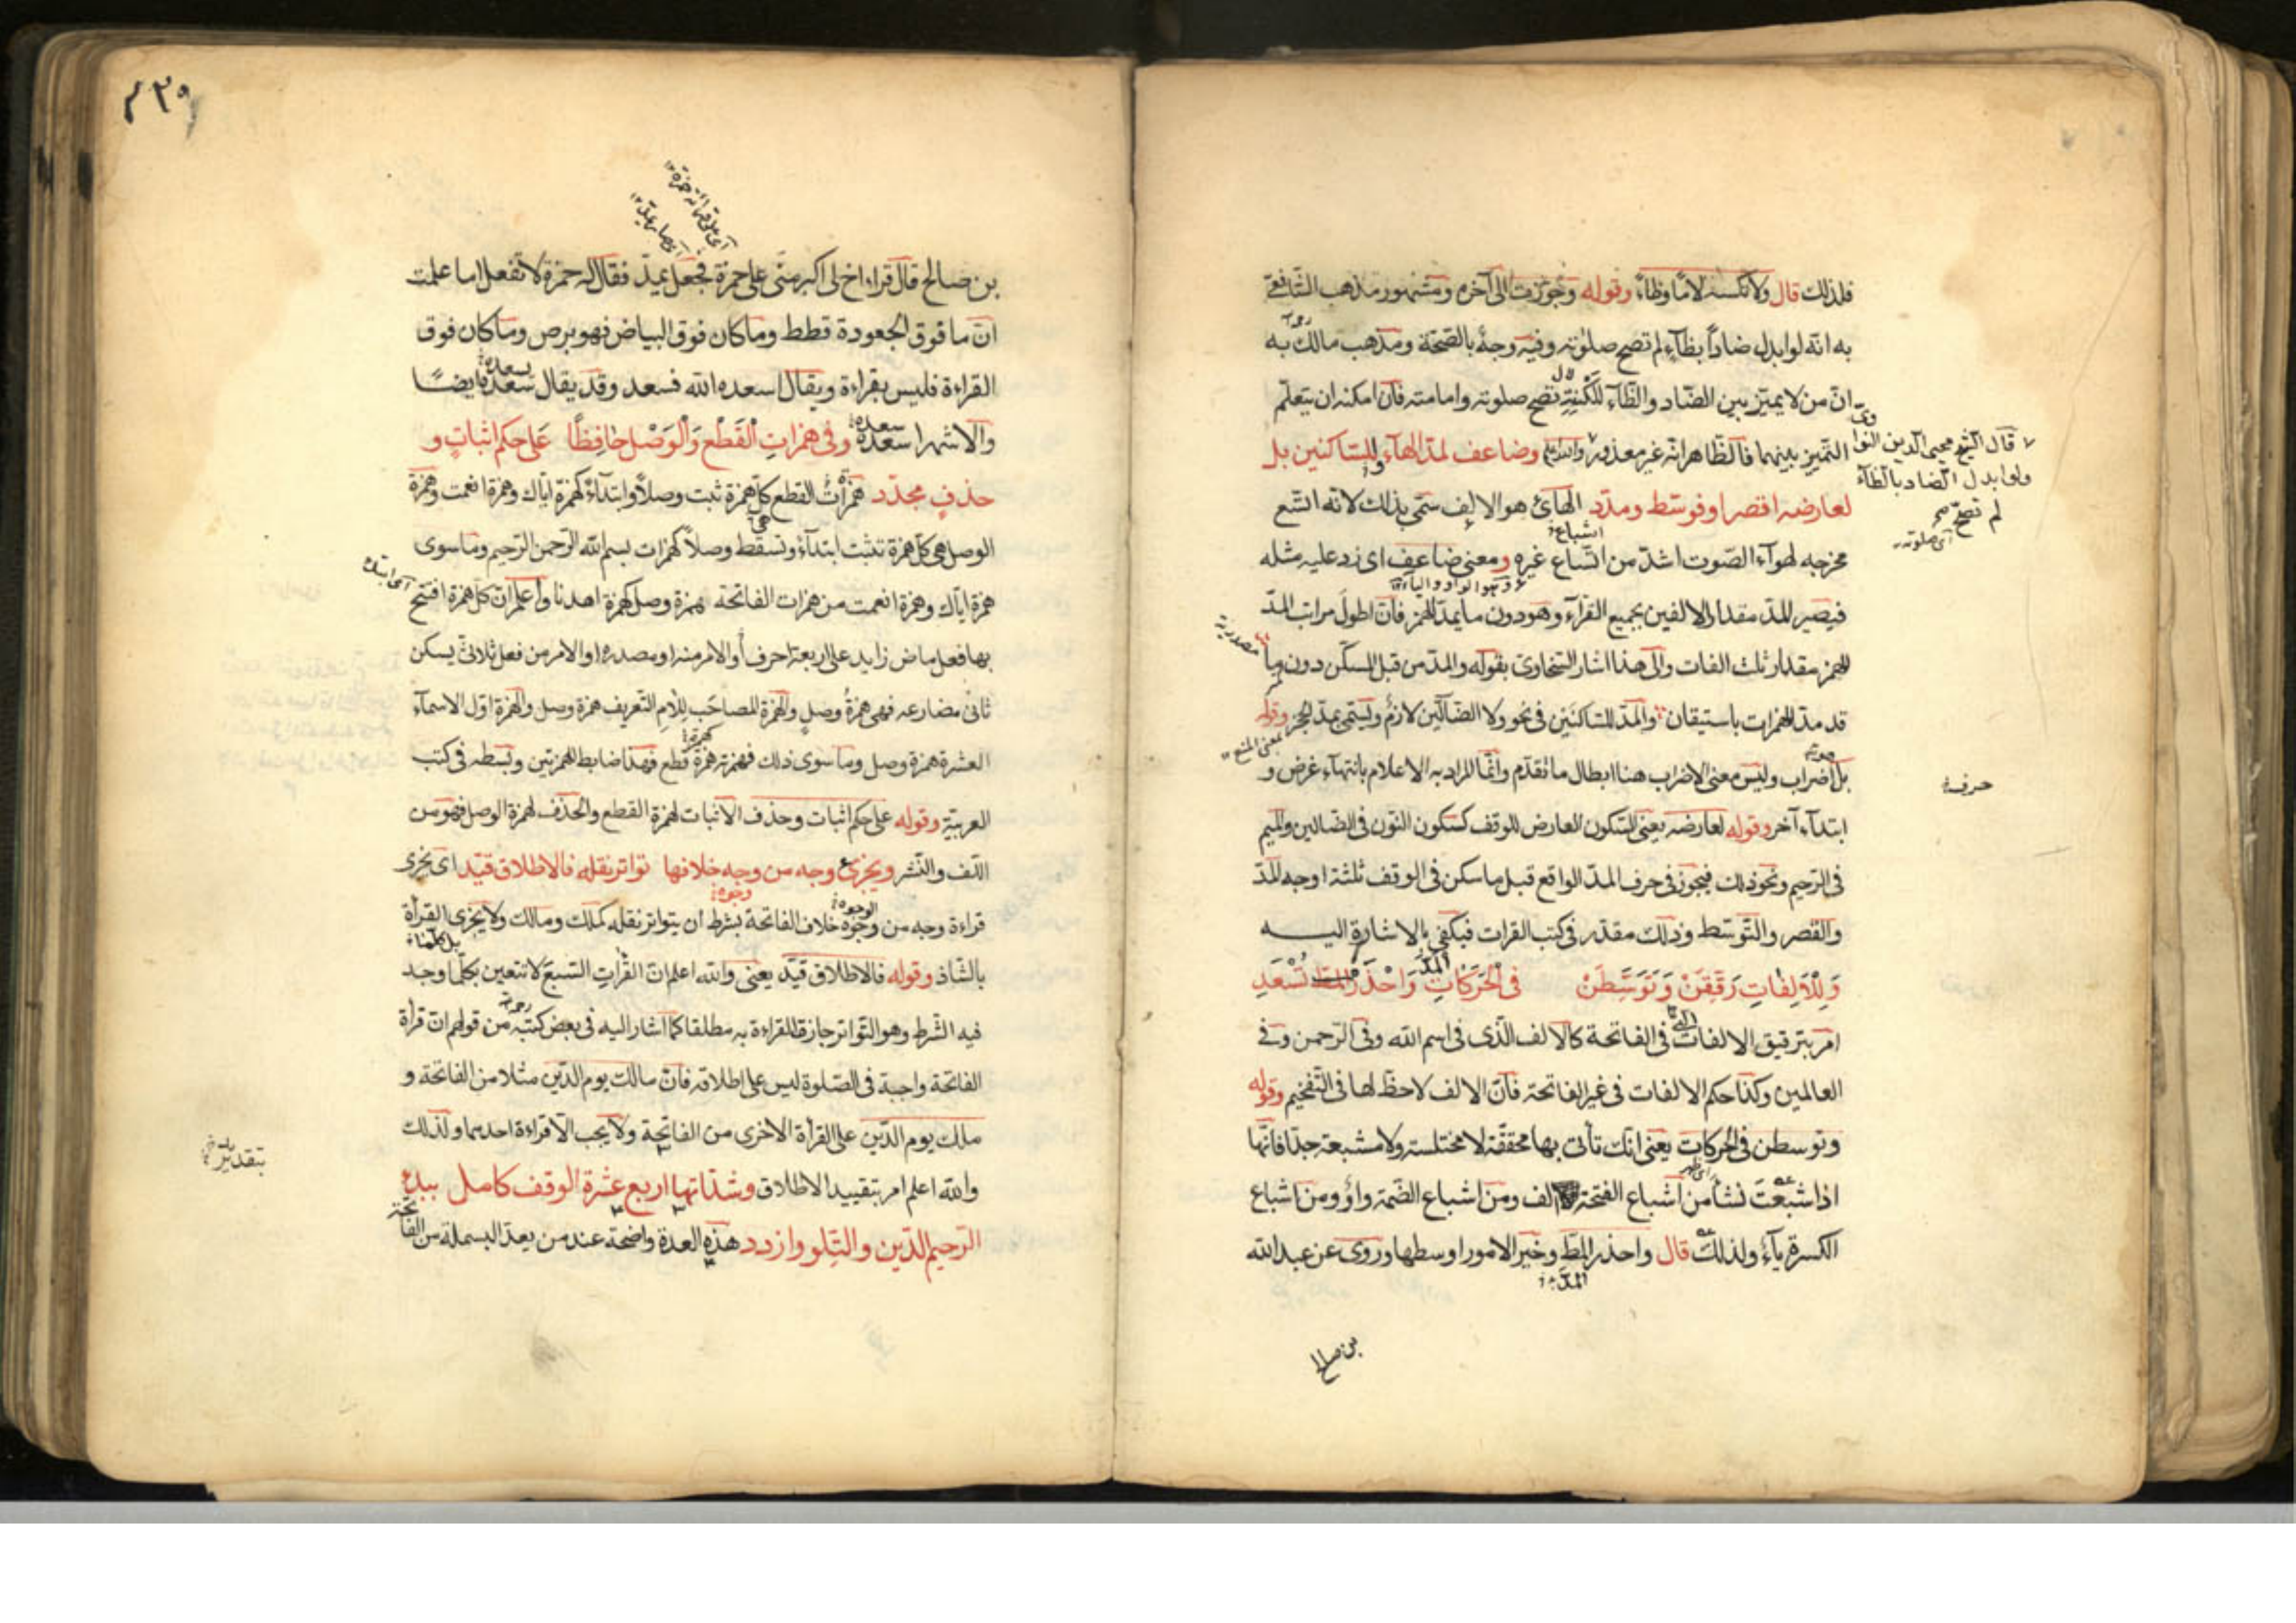 فلذلك قال ولا تكسه لاما وظاء وقوله وجوزت الى آخره ومشهور مذهب الشافعي
به انه لو ابدل ضاداً بظاء لم تصح صلوته وفيه وجهٌ بالصحة ومذهب مالك به
انّ من لا يميّز بين الضاد والظآء للكنةٍ تصح صلوته وامامته فان امكنه ان يتعلّم
التمييز بينهما فالظاهر انه غير معذور وضاعف لمدّ الهآء وللساكنين بل
لعارضه اقصر او فوسّط ومدّد الهائ هو الالف سمّى بذلك لانه اتسع
مخرجه لهوآء الصّوت اشدّ من اتّساع غيره ومعنى ضاعف اى زد عليه مثله
فيصير للمدّ مقدار الالفين بجميع القرآء وهو دون ما يمدّ للهمز فانّ اطول مراتب المدّ
للهمز مقدار ثلث الفات والى هذا اشار السخاوى بقوله والمدّ من قبل المسكّن دون ما
قد مدّ للهمزات باستيقان والمدّ للساكنين فى نحو ولا الضآلّين لازم ويسمى بمدّ الحجز وقوله
بل اضراب وليس معنى الاضراب هنا ابطال ما تقدّم وانّما المراد به الاعلام بانتهآء غرض و
ابتدآء آخر وقوله لعارضه يعنى السّكون العارض للوقف كسكون النون فى الضالين والميم
فى الرّحيم ونحو ذلك فيجوز فى حرف المدّ الواقع قبل ما سكن فى الوقف ثلثة اوجه المدّ
والقصر والتّوسّط وذلك مقدّر فى كتب القرات فيكفى بالاشارة اليه
وَلِلْاَلِفاتِ رَقِّقَنْ وَتَوَسَّطَنْ فى الْحَرَكَاتِ وَاحْذَرِ المدّ تُسْعَدِ
امر بترقيق الالفات فى الفاتحة كالالف الّذى فى اسم الله وفى الرّحمن وفى
العالمين وكذا حكم الالفات فى غير الفاتحة فانّ الالف لا حظّ لها فى التّفخيم وقوله
وتوسطن فى الحركات يعنى انّك تأتى بها محققة لا مختلسة ولا مشبعة جدّا فانّها
اذا شبعت نشأ من اشباع الفتحة الف ومن اشباع الضّمة واوٌ ومن اشباع
الكسرة يآءٌ ولذلك قال واحذر المطّ وخير الامور اوسطها وروى عن عبد الله
قال الشيخ محيى الدين النواوى
ولو ابدل الضاد بالظآء
لم تصحّ
اى صلوته
اشباع
مصدرية
بمعنى المنع
حرف
المدّ
بن صالح
بن صالح قال قراء اخ لى اكبر منّى على حمزة فجعل يمدّ فقال له حمزة لا تفعل اما علمت
انّ ما فوق الجعودة قطط وما كان فوق البياض فهو برص وما كان فوق
القراءة فليس بقراءة ويقال اسعده الله فسعد وقد يقال سعده ايضًا
والاشهر اسعده وفى همزاتِ الْقَطْع وَالْوَصْل حافِظًا عَلى حكم اثباتٍ و
حذفٍ مجدّد همزاتُ القطع كلّ همزة ثبت وصلاً وابتدآءً كهمزة ايّاك وهمزة انعمت وهمزة
الوصل هى كلّ همزة تثبت ابتدآءً وتسقط وصلاً كهمزات بسم الله الرّحمن الرّحيم وما سوى
همزة ايّاك وهمزة انعمت من همزات الفاتحة همزة وصل كهمزة اهدنا واعلم انّ كل همزة افتتح
بها فعل ماض زايد على اربعة احرف أو الامر منه او مصدره او الامر من فعل ثلاثىّ يسكن
ثانى مضارعه فهى همزةُ وصلٍ والهمزة المصاحَب للام التّعريف همزة وصل والهمزة اوّل الاسمآء
العشرة همزة وصل وما سوى ذلك فهمزته همزة قطع فهذا ضابط الهمزتين وبسطه فى كتب
العربية وقوله على حكم اثبات وحذف الاثبات لهمزة القطع والحذف لهمزة الوصل فهو من
اللف والنّشر ويجزئ وجه من وجه خلافها تواتر نقله فالاطلاق قيّد اى يجزى
قراءة وجه من وجوه خلاف الفاتحة بشرط ان يتواتر نقله كملك ومالك ولا يجزى القرأة
بالشّاذ وقوله فالاطلاق قيّد يعنى والله اعلم انّ القُرات السّبع لا تتعين بكلّما وجد
فيه الشّرط وهو التّواتر جازة القراءة به مطلقا كما اشار اليه فى بعض كتبه من قولهم انّ قرأة
الفاتحة واجبة فى الصّلوة ليس على اطلاقه فانّ مالك يوم الدّين مثلا من الفاتحة و
ملك يوم الدّين على القرأة الاخرى من الفاتحة ولا يجب الّا قراءة احدهما ولذلك
والله اعلم امر بتقييد الاطلاق وشدّاتها اربع عشرة الوقف كامل ببدء
الرّحيم الدّين والتّلو وازدد هذه العدة واضحة عند من يعدّ البسملة من الفاتحة
بتقدير